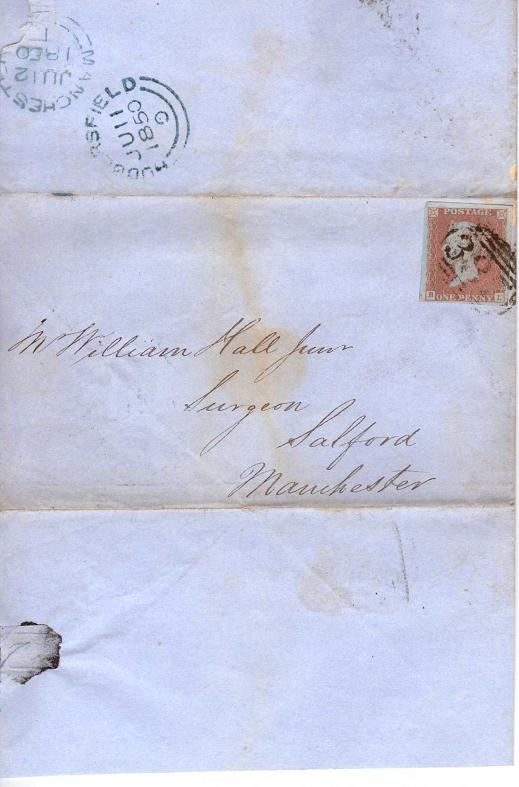 MANCHESTE
JU 12
1850
HUDDERSFIELD
JU 11
1850
POSTAGE
ONE PENNY
Mr William Hall Junr
Surgeon
Salford
Manchester